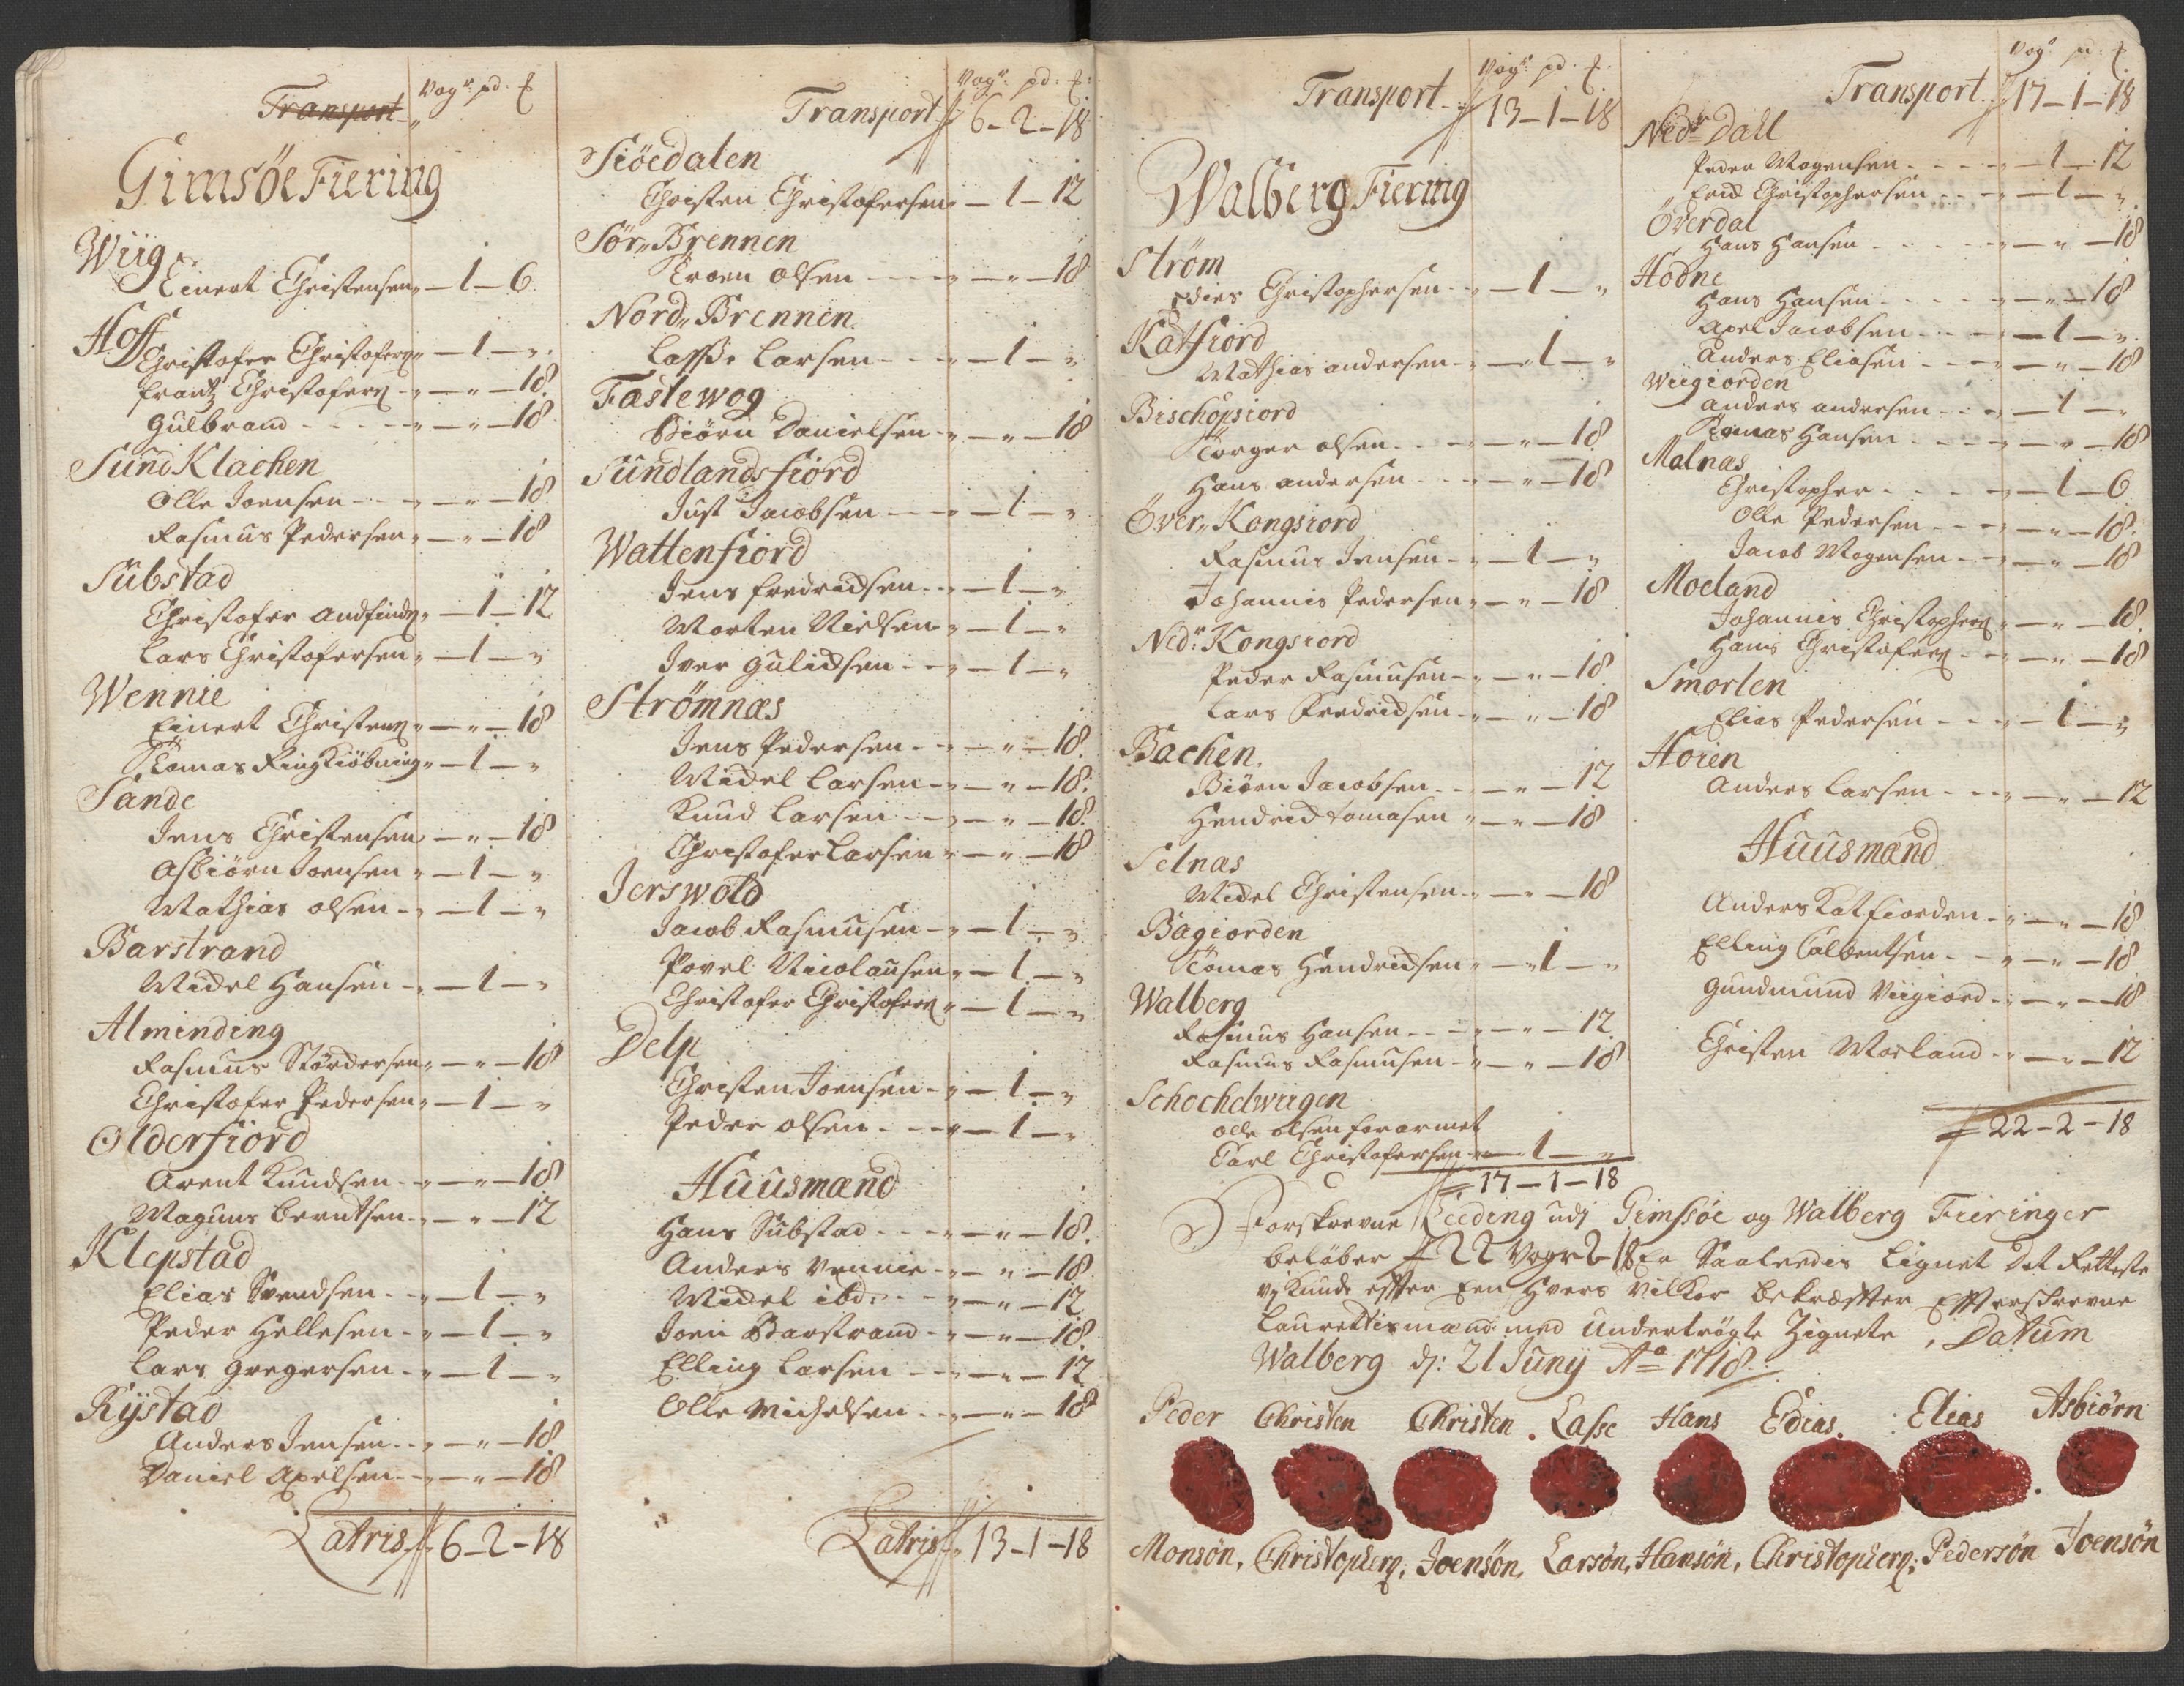 Vogr pd. ℔
Transport
Gimsöe Fiering
Wiig
Einert Christensen „ — 1 — 6
Hoff
Christofer Christofers „ — 1 — „
Frantz Christofers „ — „ — 18
Gulbrand „ — „ — 18
Sund Klachen
Olle Joensen „ — „ — 18
Rasmus Pedersen „ — „ — 18
Substad
Christofer Andfinds „ — 1 — 12
Lars Christofersen „ — 1 — „
Wennie
Einert Christens „ — „ — 18
Tomas Ringkiöbning „ — 1 — „
Sande
Jens Christensen „ — „ — 18
Asbiörn Joensen „ — 1 — „
Mathias olsen „ — 1 — „
Barstrand
Michel Hansen „ — 1 — „
Alminding
Rasmus Störckersen „ — „ — 18
Christofer Pedersen „ — 1 — „
Olderfiord
Arent Knudsen „ — „ — 18
Magnus Berntsen „ — „ — 12
Klepstad
Elias Svendsen „ — 1 — „
Peder Hellesen „ — 1 — „
Lars Gregersen „ — 1 — „
Rystad
Anders Jensen „ — „ — 18
Daniel Axelsen „ — „ — 18
Latris 6 — 2 — 18
Vogr pd. ℔
Transport 6 — 2 — 18
Siöedalen
Christen Christofersen — 1 — 12
Sör„ Brennen
Troen olsen „ — „ — 18
Nord„ Brennen
Lasse Larsen „ — 1 — „
Fastewog
Biörn Danielsen „ — „ — 18
Sundlandsfiord
Just Jacobsen „ — 1 — „
Wattenfiord
Jens Fredricksen „ — 1 — „
Morten Nielsen „ — 1 — „
Iver Gulicksen „ — 1 — „
Strömnæs
Jens Pedersen „ — „ — 18
Michel Larsen „ — „ — 18
Knud Larsen „ — „ — 18
Christofer Larsen „ — „ — 18
Jerswold
Jacob Rasmusen „ — 1 — „
Povel Nicolausen „ — 1 — „
Christofer Christofers „ — 1 — „
Delp
Christen Joensen „ — 1 — „
Peder olsen „ — 1 — „
Huusmænd
Hans Substad „ — „ — 18
Anders Vennie „ — „ — 18
Michel ibd: „ — „ — 12
Joen Barstrand „ — „ — 18
Elling Larsen „ — „ — 12
Olle Michelsen „ — „ — 18
Latris 13 — 1 — 18
Vogr pd. ℔
Transport 13 — 1 — 18
Walberg Fiering
Ström
Dies Christophersen „ — 1 — „
Katfiord
Mathias andersen „ — 1 — „
Bischopsiord
Torger olsen „ — „ — 18
Hans andersen „ — „ — 18
Över„ Kongsiord
Rasmus Jensen „ — 1 — „
Johannis Pedersen „ — „ — 18
Nedr Kongsiord
Peder Rasmusen „ — „ — 18
Lars Fredricksen „ — „ — 18
Bachen
Biörn Jacobsen „ — „ — 12
Hendrick tomasen „ — „ — 18
Selnæs
Michel Christensen „ — „ — 18
Bagiorden
Tomas Hendricksen „ — 1 — „
Walberg
Rasmus Hansen „ — „ — 12
Rasmus Rasmusen „ — „ — 18
Schochelwiigen
olle olsen forarmet
Carl Christofersen „ — 1 — „
17 — 1 — 18
Vogr pd ℔
Transport 17 — 1 — 18
Nedr Dall
Peder Mogensen „ — 1 — 12
Erick Christophersen „ — 1 — „
Överdal
Hans Hansen „ — „ — 18
Hodne
Hans Hansen „ — „ — 18
Axel Jacobsen „ — 1 — „
Anders Eliasen „ — „ — 18
Wiigiorden
Anders andersen „ — 1 — „
Tomas Hansen „ — „ — 18
Malnæs
Christopher „ — 1 — 6
Olle Pedersen „ — „ — 18
Jacob Mogensen „ — „ — 18
Moeland
Johannis Christophers „ — „ — 18
Hans Christofers „ — „ — 18
Smorten
Elias Pedersen „ — 1 — „
Hoien
Anders Larsen „ — „ — 12
Huusmænd
Anders Katfiorden „ — „ — 18
Elling Colbentsen „ — „ — 18
Gundmund Viigiord „ — „ — 18
Christen Morland „ — „ — 12
22 — 2 — 18
Forskrevne Leeding udj Gimssöe og Walberg Fieringer
belöber 22 Vogr 2 18 Er Saaledis Lignet Det Retteste
vj kunde effter Een Hvers vilkor bekræffter Effterschrevne
Laurettismænd med undertrögte Zignete, Datum
Walberg dj: 21 Junij Ao 1718
Peder Christen Christen Lasse Hans Edias Elias Asbiörn
Monsön, Christophers, Joensön, Larsön, Hansön, Christophers, Pedersön Joensön